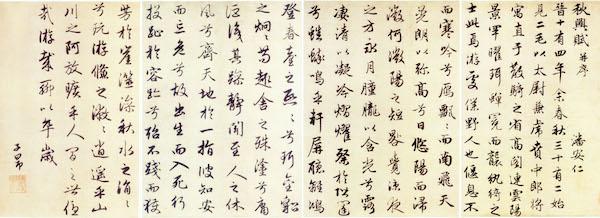 秋興賦 并序
潘安仁
晋十有四年余春秋三十有二始
見二毛以太尉掾兼虎賁中郎將
寓直于散騎之省高閣連雲陽
景罕曜珥蟬冕而襲紈綺之
士此焉游處僕野人也偃息不
而寒吟兮鴈飄飄而南飛天
晃朗以彌高兮日悠陽而浸
微何微陽之短晷覺涼夜
之方永月朣朧以含光兮露
凄清以凝冷熠燿粲於階闥
兮蟋蟀鳴乎軒屏聽離鴻
登春臺之熙熙兮珥金貂
之炯炯苟趣舍之殊塗兮庸
詎識其躁靜聞至人之休
風兮齊天地於一指彼知安
而忘危兮故出生而入死行
投趾於容跡兮殆不踐而獲
芳於崖澨澡秋水之涓涓
兮玩游儵之潎潎逍遙乎山
川之阿放曠乎人間之世優
哉游哉聊以卒歲
子昂